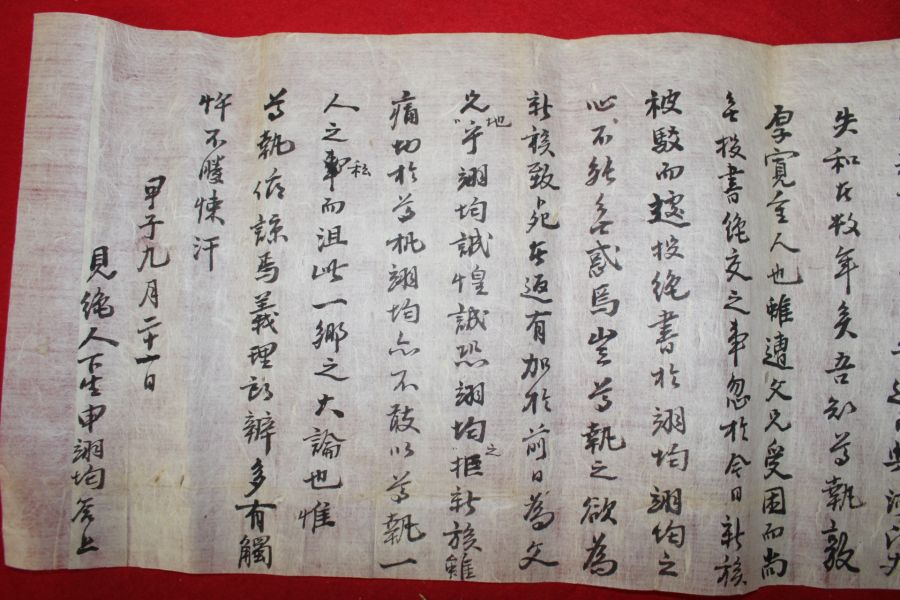 失和在數年矣吾知尊執敦
厚寬重人也雖遭父兄受困而尚
無投書絶交之事忽於今日新族
被駁而遽投絶書於翊均翊均之
心不能無惑焉豈尊執之欲爲
新族致死在返有加於前日爲父
兄地乎翊均誠惶誠恐翊均之拒新族雖
痛切於尊執翊均亦不敢以尊執一
人之私事而沮此一鄕之大論也惟
尊執俯諒焉義理所辨多有觸
忤不勝悚汗
甲子九月二十一日
見絶人下生申翊均答上